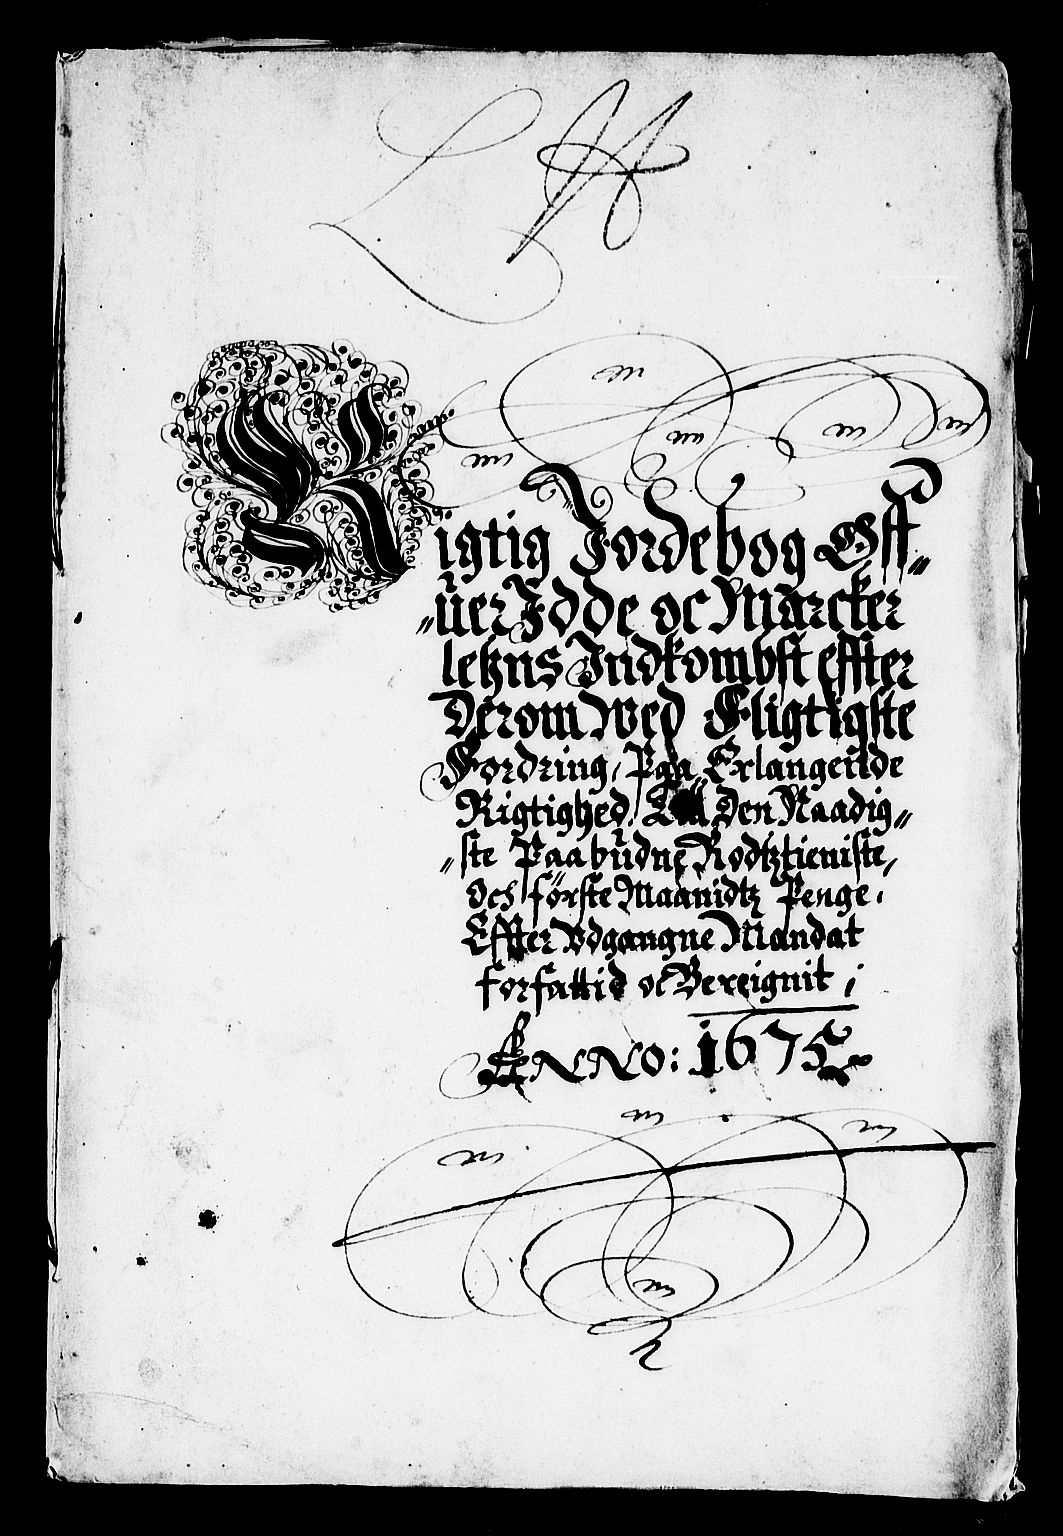 L A
Rigtig Jordebog Off„
„uer Idde oc Marcker
lehns Indkombst effter
Derom Wed Fligtigste
Fordring, Paa Erlangende
Rigtighed. Till Den Naadig„
„ste Paabudne Rodtztieniste,
Och förste Maanidtz Penge.
Effter Vdgangne Mandat
forfattid oc Bereignit;
Anno: 1675